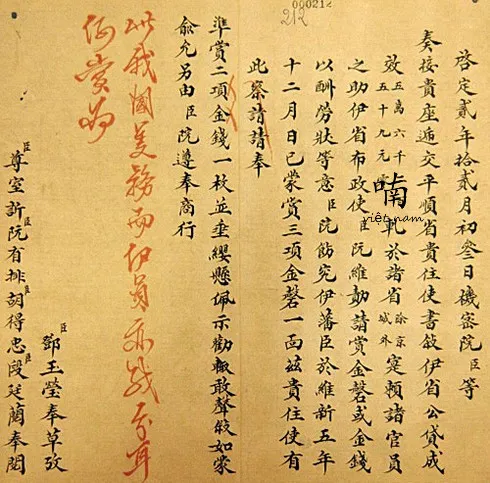 000212
212
啓定貳年拾貳月初叁日機密院臣等
奏接貴座遞交平順省貴住使書敘伊省公貸成
效五萬六千五十九元零軋於諸省除京城外寔賴諸官員
之助伊省布政使臣阮維勍請賞金磬或金錢
以酬勞狀等意臣院飭究伊藩臣於維新五年
十二月日已蒙賞三項金磬一面茲貴住使有
此察請請奉
準賞二項金錢一枚並垂纓懸佩示勸輙敢聲敘如蒙
俞允另由臣院遵奉商行
此我國義務而伊員亦
何賞為
臣鄧玉瑩奉草攷
臣尊室訢臣阮有排臣胡得忠臣段廷蘭奉閱
喃
việt nam